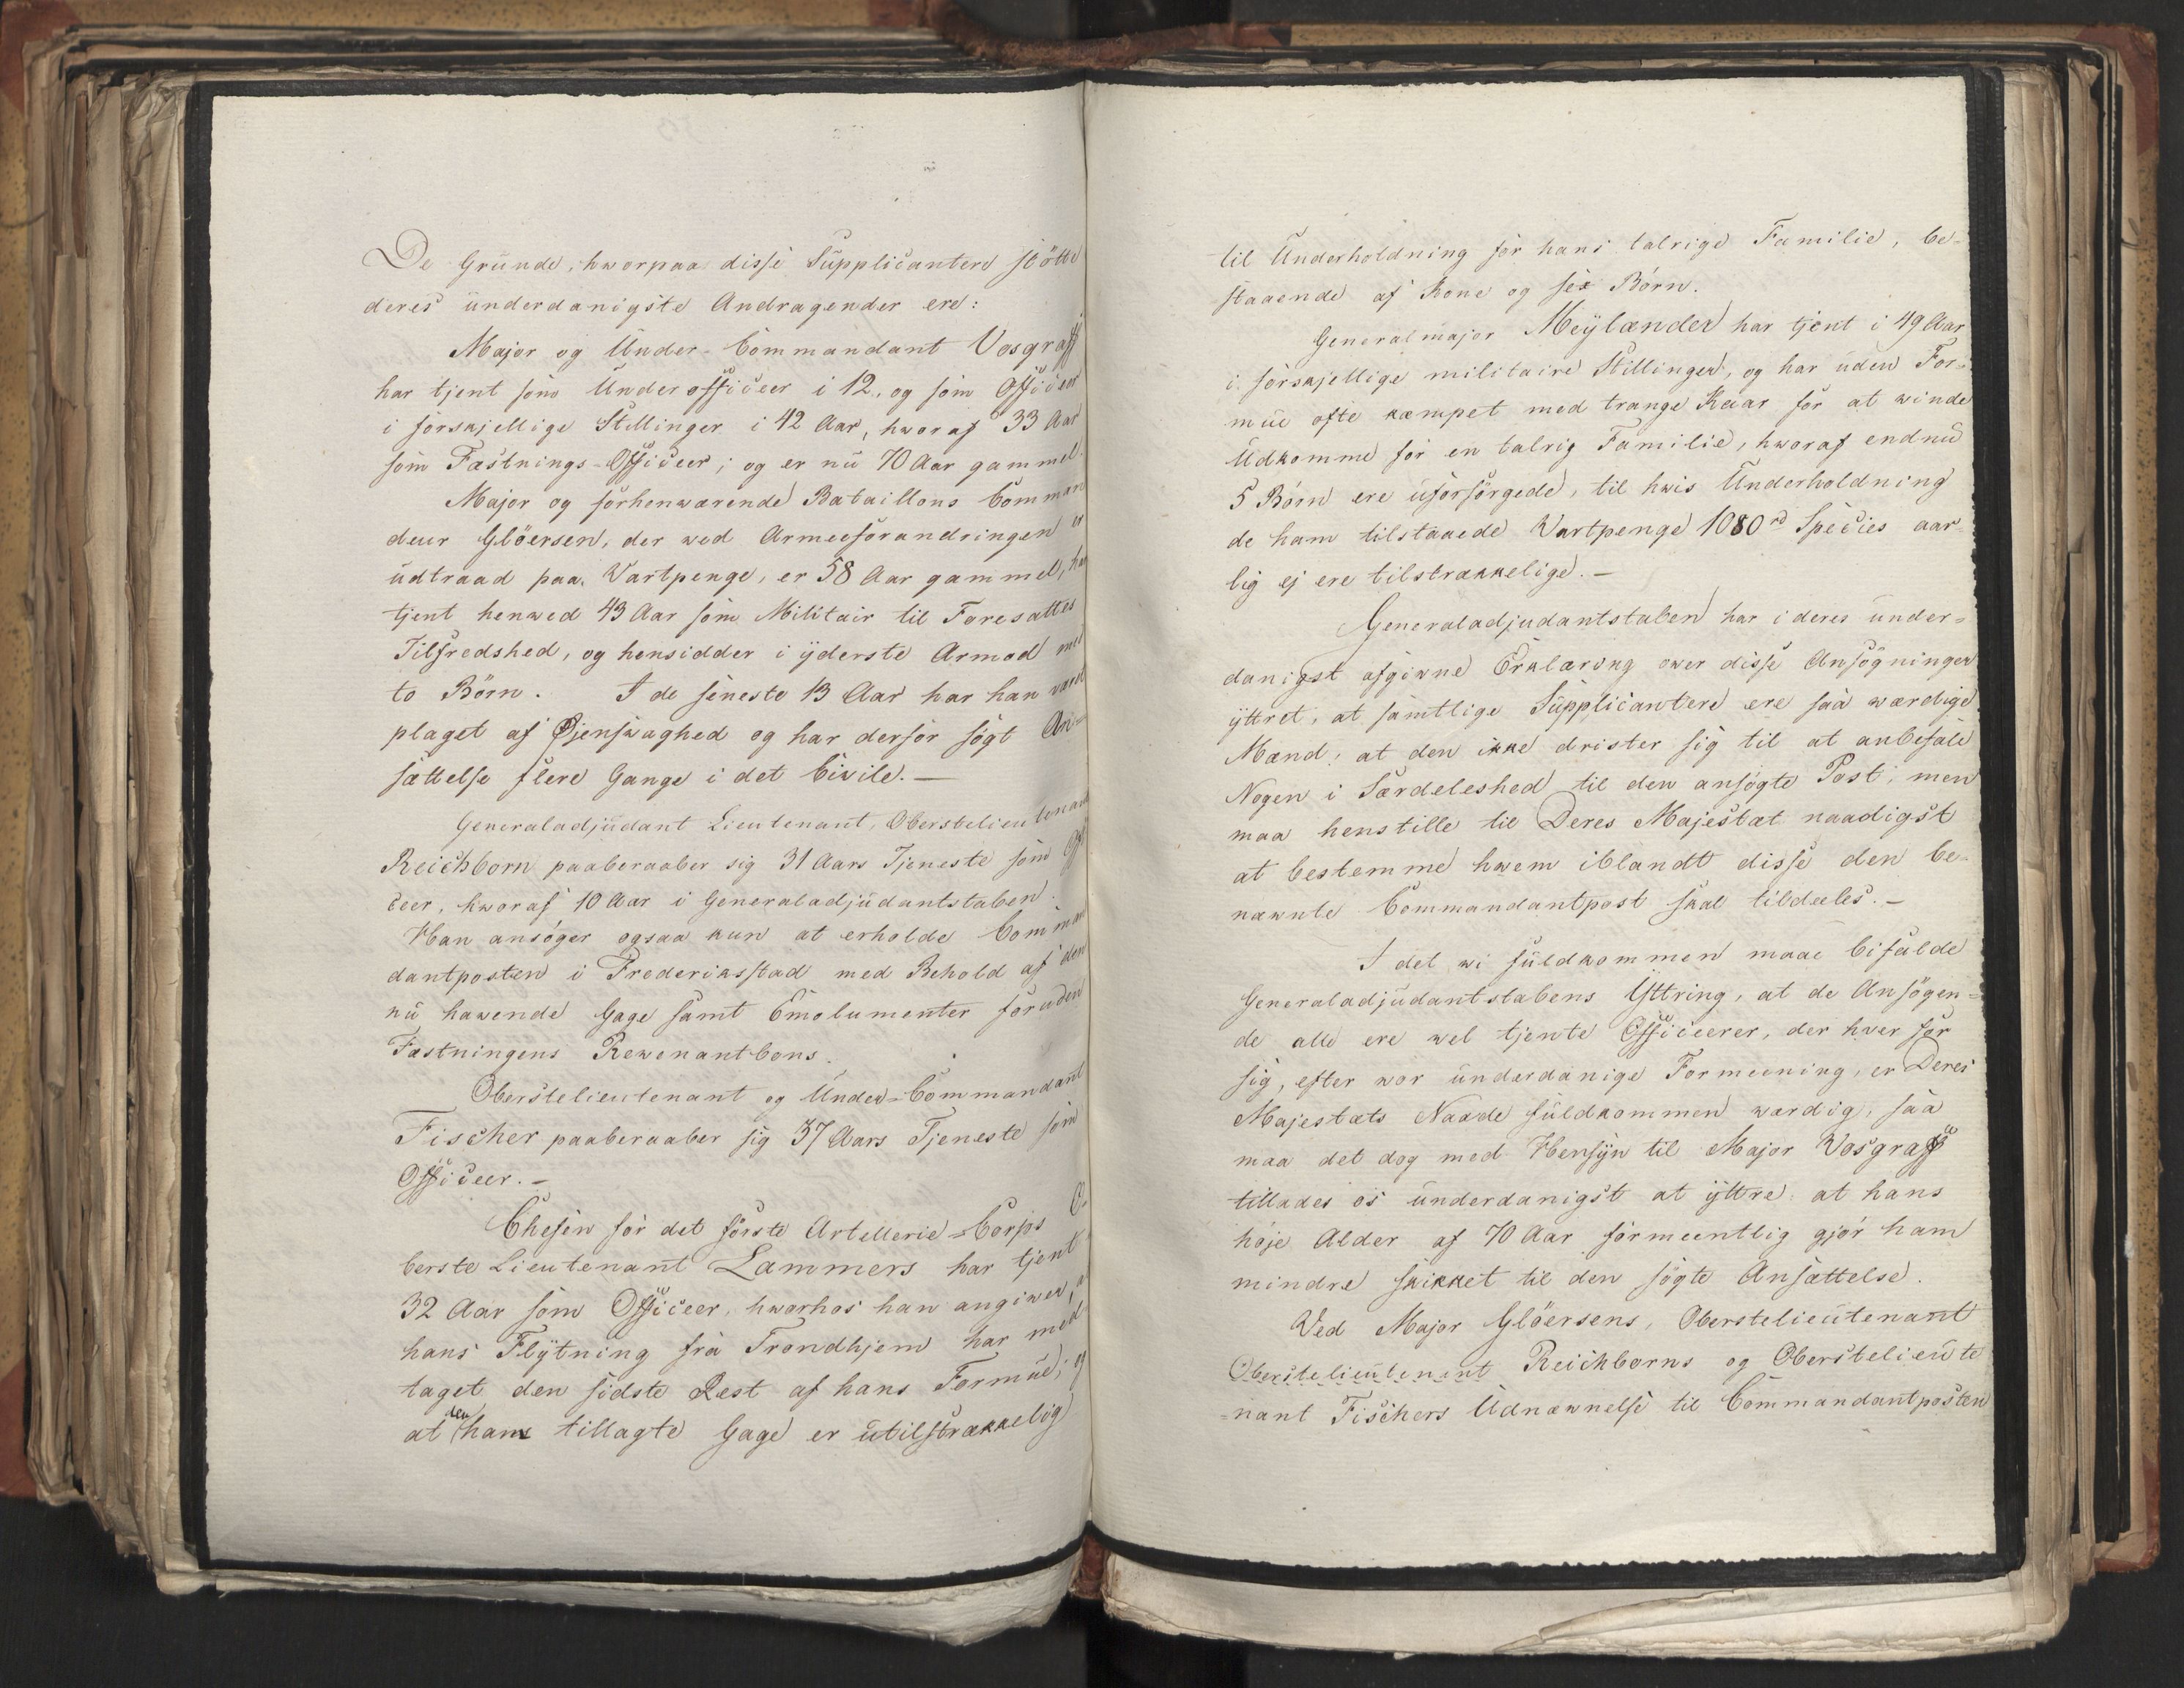 De Grunde, hworpaa disse Supplicantere støtte
deres underdanigste Andragender ere:
Major og Under-Commandant Vosgraff
har tjent som Underofficeer i 12, og som Officeer
i forskjellige Stillinger i 42 Aar, hworaf 33 Aar
som Fæstnings-Officeer; og er nu 70 Aar gammel.
Major og forhenwærende Bataillons Comman
deur Glöersen, der wed Armeeforandringen er
udtraad paa Vartpenge, er 58 Aar gammel, har
tjent henwed 43 Aar som Militair til Foresattes
Tilfredshed, og hensidder i yderste Armod med
to Børn. I de seneste 13 Aar har han været
plaget af Øjenswaghed og har derfor søgt An-
sættelse flere Gange i det Civile. —
Generaladjudant Lieutenant, Oberstelieutenant
Reichborn paaberaaber sig 31 Aars Tjeneste som Offi
ceer, hworaf 10 Aar i Generaladjudantstaben.
Han ansøger ogsaa kun at erholde Comman
dantposten i Frederiksstad med Behold af den
nu hawende Gage samt Emolumenter foruden
Fæstningens Rewenantbons.
Oberstelieutenant og Under-Commandant
Fischer paaberaaber sig 37 Aars Tjeneste som
Officeer. —
Chefen for det første Artellerie-Corps O-
berste Lieutenant Lammers har tjent
32 Aar som Officeer, hworhos han angiwer, at
hans Flytning fra Trondhjem har med
taget den sidste Rest af hans Formue, og
at den ham tillagte Gage er utilstrækkelig
til Underholdning for hans talrige Familie, be-
staaende af Kone og sex Børn.
Generalmajor Meylænder har tjent i 49 Aar
i forskjellige militaire Stillinger, og har uden For-
mue ofte kæmpet med trange Kaar for at winde
Udkomme for en talrig Familie, hworaf endnu
5 Børn ere uforsørgede, til hwis Underholdning
de ham tilstaaede Vartpenge 1080 rd Species aar-
lig ej ere tilstrækkelige. —
Generaladjudantstaben har i deres under-
danigst afgiwne Erklæring ower disse Ansøgninger
yttret, at samtlige Supplicantere ere saa wærdige
Mænd, at den ikke drister sig til at anbefale
Nogen i Særdeleshed til den ansøgte Post; men
maa henstille til Deres Majestæt naadigst
at bestemme hwem iblandt disse den be-
næwnte Commandantpost skal tildeeles. —
I det wi fuldkommen maae bifalde
Generaladjudantstabens Yttring, at de Ansøgen-
de alle ere wel tjente Officeerer, der hver for
sig, efter wor underdanige Formeening, er Deres
Majestæts Naade fuldkommen wærdig, saa
maa det dog med Hensyn til Major Vosgraff
tillades os underdanigst at yttre at hans
høje Alder af 70 Aar formeentlig gjør ham
mindre skikket til den søgte Ansættelse.
Ved Major Glöersens, Oberstelieutenant
Oberstelieutenant Reichborns og Oberstelieute
-nant Fischers Udnæwnelse til Commandantposten